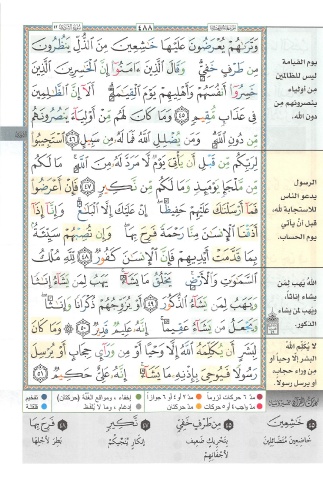 ٤٨٨
وَتَرَىٰهُمْ يُعْرَضُونَ عَلَيْهَا خَٰشِعِينَ مِنَ ٱلذُّلِّ يَنظُرُونَ
مِن طَرْفٍ خَفِىٍّ ۗ وَقَالَ ٱلَّذِينَ ءَامَنُوٓا۟ إِنَّ ٱلْخَٰسِرِينَ ٱلَّذِينَ
خَسِرُوٓا۟ أَنفُسَهُمْ وَأَهْلِيهِمْ يَوْمَ ٱلْقِيَٰمَةِ ۗ أَلَآ إِنَّ ٱلظَّٰلِمِينَ
فِى عَذَابٍ مُّقِيمٍ ٤٥ وَمَا كَانَ لَهُم مِّنْ أَوْلِيَآءَ يَنصُرُونَهُم
مِّن دُونِ ٱللَّهِ ۗ وَمَن يُضْلِلِ ٱللَّهُ فَمَا لَهُۥ مِن سَبِيلٍ ٤٦ ٱسْتَجِيبُوا۟
لِرَبِّكُم مِّن قَبْلِ أَن يَأْتِىَ يَوْمٌ لَّا مَرَدَّ لَهُۥ مِنَ ٱللَّهِ ۚ مَا لَكُم
مِّن مَّلْجَإٍ يَوْمَئِذٍ وَمَا لَكُم مِّن نَّكِيرٍ ٤٧ فَإِنْ أَعْرَضُوا۟
فَمَآ أَرْسَلْنَٰكَ عَلَيْهِمْ حَفِيظًا ۖ إِنْ عَلَيْكَ إِلَّا ٱلْبَلَٰغُ ۗ وَإِنَّآ إِذَآ
أَذَقْنَا ٱلْإِنسَٰنَ مِنَّا رَحْمَةً فَرِحَ بِهَا ۖ وَإِن تُصِبْهُمْ سَيِّئَةٌۢ
بِمَا قَدَّمَتْ أَيْدِيهِمْ فَإِنَّ ٱلْإِنسَٰنَ كَفُورٌ ٤٨ لِّلَّهِ مُلْكُ
ٱلسَّمَٰوَٰتِ وَٱلْأَرْضِ ۚ يَخْلُقُ مَا يَشَآءُ ۚ يَهَبُ لِمَن يَشَآءُ إِنَٰثًا
وَيَهَبُ لِمَن يَشَآءُ ٱلذُّكُورَ ٤٩ أَوْ يُزَوِّجُهُمْ ذُكْرَانًا وَإِنَٰثًا ۖ
وَيَجْعَلُ مَن يَشَآءُ عَقِيمًا ۚ إِنَّهُۥ عَلِيمٌ قَدِيرٌ ٥٠ وَمَا كَانَ
لِبَشَرٍ أَن يُكَلِّمَهُ ٱللَّهُ إِلَّا وَحْيًا أَوْ مِن وَرَآئِ حِجَابٍ أَوْ يُرْسِلَ
رَسُولًا فَيُوحِىَ بِإِذْنِهِۦ مَا يَشَآءُ ۚ إِنَّهُۥ عَلِىٌّ حَكِيمٌ ٥١
يوم القيامة
ليس للظالمين
من أولياء
ينصرونهم من
دون الله.
الرسول
يدعو الناس
للاستجابة لله،
قبل أنْ يأتي
يوم الحساب.
اللهُ يَهَب لِمَن
يشاء إناثاً،
ويَهَب لِمَن يشاء
الذكور.
لا يُكلِّم اللهُ
البشرَ إلاّ وحياً أو
من وراء حجاب
أو يرسل رسولا.
مدّ ٦ حركات لزوماً
مدّ ٢ أو ٤ أو ٦ جوازاً
إخفاء، ومواقع الغُنَّة (حركتان)
تفخيم
مدّ واجب ٤ أو ٥ حركات
مدّ حركتان
إدغام، وما لا يُلفظ
قلقلة
٤٥ خَٰشِعِينَ
خاضعين متضائلين
٤٥ مِن طَرْفٍ خَفِيٍّ
بتحريك ضعيف
لأجفانهم
٤٧ نَّكِيرٍ
إنكار يُنجيكم
٤٨ فَرِحَ بِهَا
بَطِرَ لأجلها